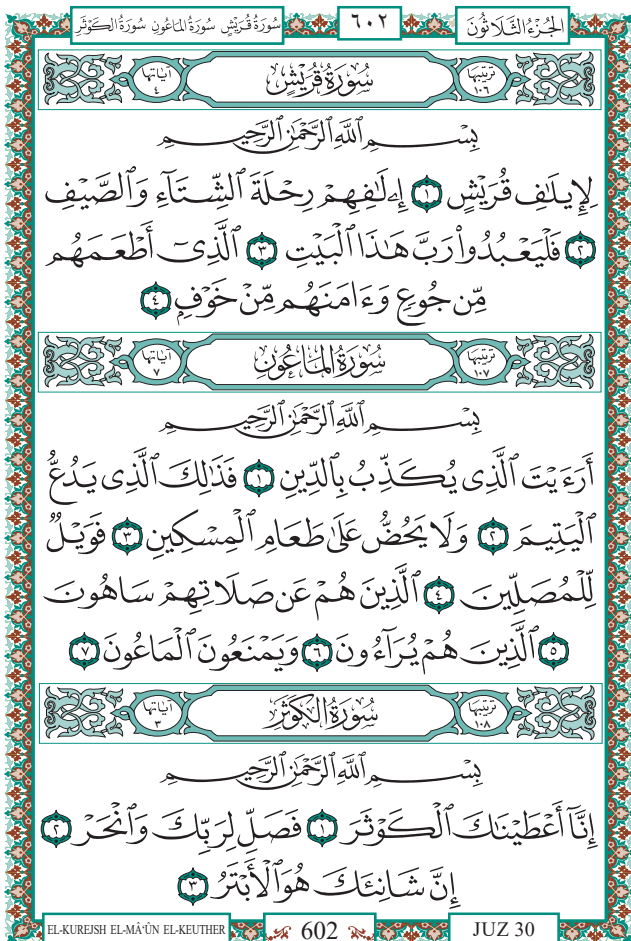 الجُزْءُ الثَّلَاثُونَ ٦٠٢ سُورَةُ قُرَيْشٍ سُورَةُ المَاعُونِ سُورَةُ الكَوْثَرِ
ترتيبها ١٠٦ سُورَةُ قُرَيْشٍ آياتها ٤
بِسْمِ ٱللَّهِ ٱلرَّحْمَٰنِ ٱلرَّحِيمِ
لِإِيلَٰفِ قُرَيْشٍ ١ إِۦلَٰفِهِمْ رِحْلَةَ ٱلشِّتَآءِ وَٱلصَّيْفِ
٢ فَلْيَعْبُدُوا۟ رَبَّ هَٰذَا ٱلْبَيْتِ ٣ ٱلَّذِىٓ أَطْعَمَهُم
مِّن جُوعٍ وَءَامَنَهُم مِّنْ خَوْفٍۭ ٤
ترتيبها ١٠٧ سُورَةُ المَاعُونِ آياتها ٧
بِسْمِ ٱللَّهِ ٱلرَّحْمَٰنِ ٱلرَّحِيمِ
أَرَءَيْتَ ٱلَّذِى يُكَذِّبُ بِٱلدِّينِ ١ فَذَٰلِكَ ٱلَّذِى يَدُعُّ
ٱلْيَتِيمَ ٢ وَلَا يَحُضُّ عَلَىٰ طَعَامِ ٱلْمِسْكِينِ ٣ فَوَيْلٌ
لِّلْمُصَلِّينَ ٤ ٱلَّذِينَ هُمْ عَن صَلَاتِهِمْ سَاهُونَ
٥ ٱلَّذِينَ هُمْ يُرَآءُونَ ٦ وَيَمْنَعُونَ ٱلْمَاعُونَ ٧
ترتيبها ١٠٨ سُورَةُ الكَوْثَرِ آياتها ٣
بِسْمِ ٱللَّهِ ٱلرَّحْمَٰنِ ٱلرَّحِيمِ
إِنَّآ أَعْطَيْنَٰكَ ٱلْكَوْثَرَ ١ فَصَلِّ لِرَبِّكَ وَٱنْحَرْ ٢
إِنَّ شَانِئَكَ هُوَ ٱلْأَبْتَرُ ٣
EL-KUREJSH EL-MÂ'ÛN EL-KEUTHER 602 JUZ 30